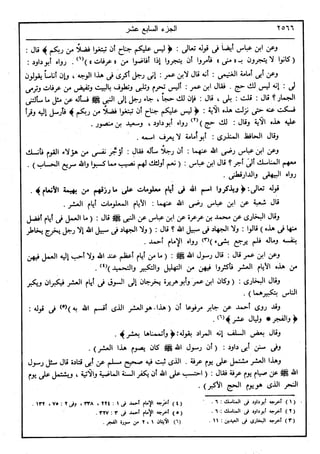 ٢٥٦٦ الجزء السابع عشر
وعن ابن عباس أيضاً فى قوله تعالى : ﴿ ليس عليكم جناح أن تبتغوا فضلاً من ربكم ﴾ قال :
( كانوا لا يتجرون بـ « منى » فأمروا أن يتجروا إذا أفاضوا من « عرفات » )(١) . رواه أبو داود :
وعن أبى أمامة التيمى : أنه قال لابن عمر : إنى رجل أكرى فى هذا الوجه ، وإن أناساً يقولون
لى : إنه ليس لك حج . فقال ابن عمر : أليس تحرم وتلبى وتطوف بالبيت وتفيض من عرفات وترمى
الجمار ؟ قال : قلت : بلى ، قال : فإن لك حجاً ، جاء رجل إلى النبى ﷺ فسأله عن مثل ما سألتنى
فسكت عنه حتى نزلت هذه الآية : ﴿ ليس عليكم جناح أن تبتغوا فضلاً من ربكم ﴾ فأرسل إليه وقرأ
عليه هذه الآية وقال : لك حج )(٢) رواه أبو داود ، وسعيد بن منصور .
وقال الحافظ المنذرى : أبو أمامة لا يعرف اسمه .
وعن ابن عباس رضى الله عنهما : أن رجلاً سأله فقال : أؤجر نفسى من هؤلاء القوم فأنسك
معهم المناسك ألى أجر ؟ قال ابن عباس : ( نعم أولئك لهم نصيب مما كسبوا والله سريع الحساب ) .
رواه البيهقى والدارقطنى .
قوله تعالى : ﴿ ويذكروا اسم الله فى أيام معلومات على ما رزقهم من بهيمة الأنعام ﴾ .
قال شعبة عن ابن عباس رضى الله عنهما : الأيام المعلومات أيام العشر .
وقال البخارى عن محمد بن عرعرة عن ابن عباس عن النبى ﷺ قال : ( ما العمل فى أيام أفضل
منها فى هذه ) قالوا : ولا الجهاد فى سبيل الله ؟ قال : ( ولا الجهاد فى سبيل الله إلا رجل يخرج يخاطر
بنفسه وماله فلم يرجع بشىء )(٣) رواه الإمام أحمد .
وعن ابن عمر قال : قال رسول الله ﷺ : ( ما من أيام أعظم عند الله ولا أحب إليه العمل فيهن
من هذه الأيام العشر فأكثروا فيهن من التهليل والتكبير والتحميد )(٤) .
وقال البخارى : ( وكان ابن عمر وأبو هريرة يخرجان إلى السوق فى أيام العشر فيكبران ويكبر
الناس بتكبيرهما ) .
وقد روى أحمد عن جابر مرفوعاً أن ( هذا . هو العشر الذى أقسم الله به )(٥) فى قوله :
﴿ والفجر * وليال عشر ﴾(٦) .
وقال بعض السلف إنه المراد بقوله : ﴿ وأتممناها بعشر ﴾ .
وفى سنن أبى داود : ( أن رسول الله ﷺ كان يصوم هذا العشر ) .
وهذا العشر مشتمل على يوم عرفة . الذى ثبت فيه صحيح مسلم عن أبى قتادة قال سئل رسول
الله ﷺ عن صيام يوم عرفة فقال : ( احتسب على الله أن يكفر السنة الماضية والآتية ، ويشتمل على يوم
النحر الذى هو يوم الحج الأكبر ) .
(١) أخرجه أبو داود فى المناسك : ٦ .
(٢) أخرجه أبو داود فى المناسك : ٦ .
(٣) أخرجه البخارى فى العيدين : ١١ .
(٤) أخرجه الإمام أحمد فى ١ : ٢٢٤ ، ٣٣٨ ، وفى ٢ : ٧٥ ، ١٣٢ .
(٥) أخرجه الإمام أحمد فى ٣ : ٣٢٧ .
(٦) الآيتان ١ ، ٢ من سورة الفجر .